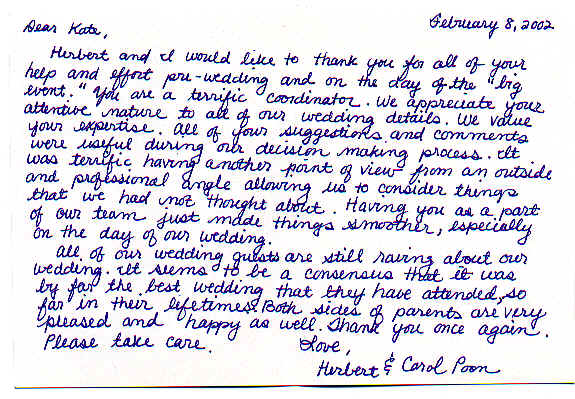 February 8, 2002
Dear Kate,
Herbert and I would like to thank you for all of your
help and effort pre-wedding and on the day of the "big
event." You are a terrific coordinator. We appreciate your
attentive nature to all of our wedding details. We value
your expertise. All of your suggestions and comments
were useful during our decision making process. It
was terrific having another point of view from an outside
and professional angle allowing us to consider things
that we had not thought about. Having you as a part
of our team just made things smoother, especially
on the day of our wedding.
All of our wedding guests are still raving about our
wedding. It seems to be a consensus that it was
by far the best wedding that they have attended, so
far in their lifetimes. Both sides of parents are very
pleased and happy as well. Thank you once again.
Please take care.
Love,
Herbert & Carol Poon